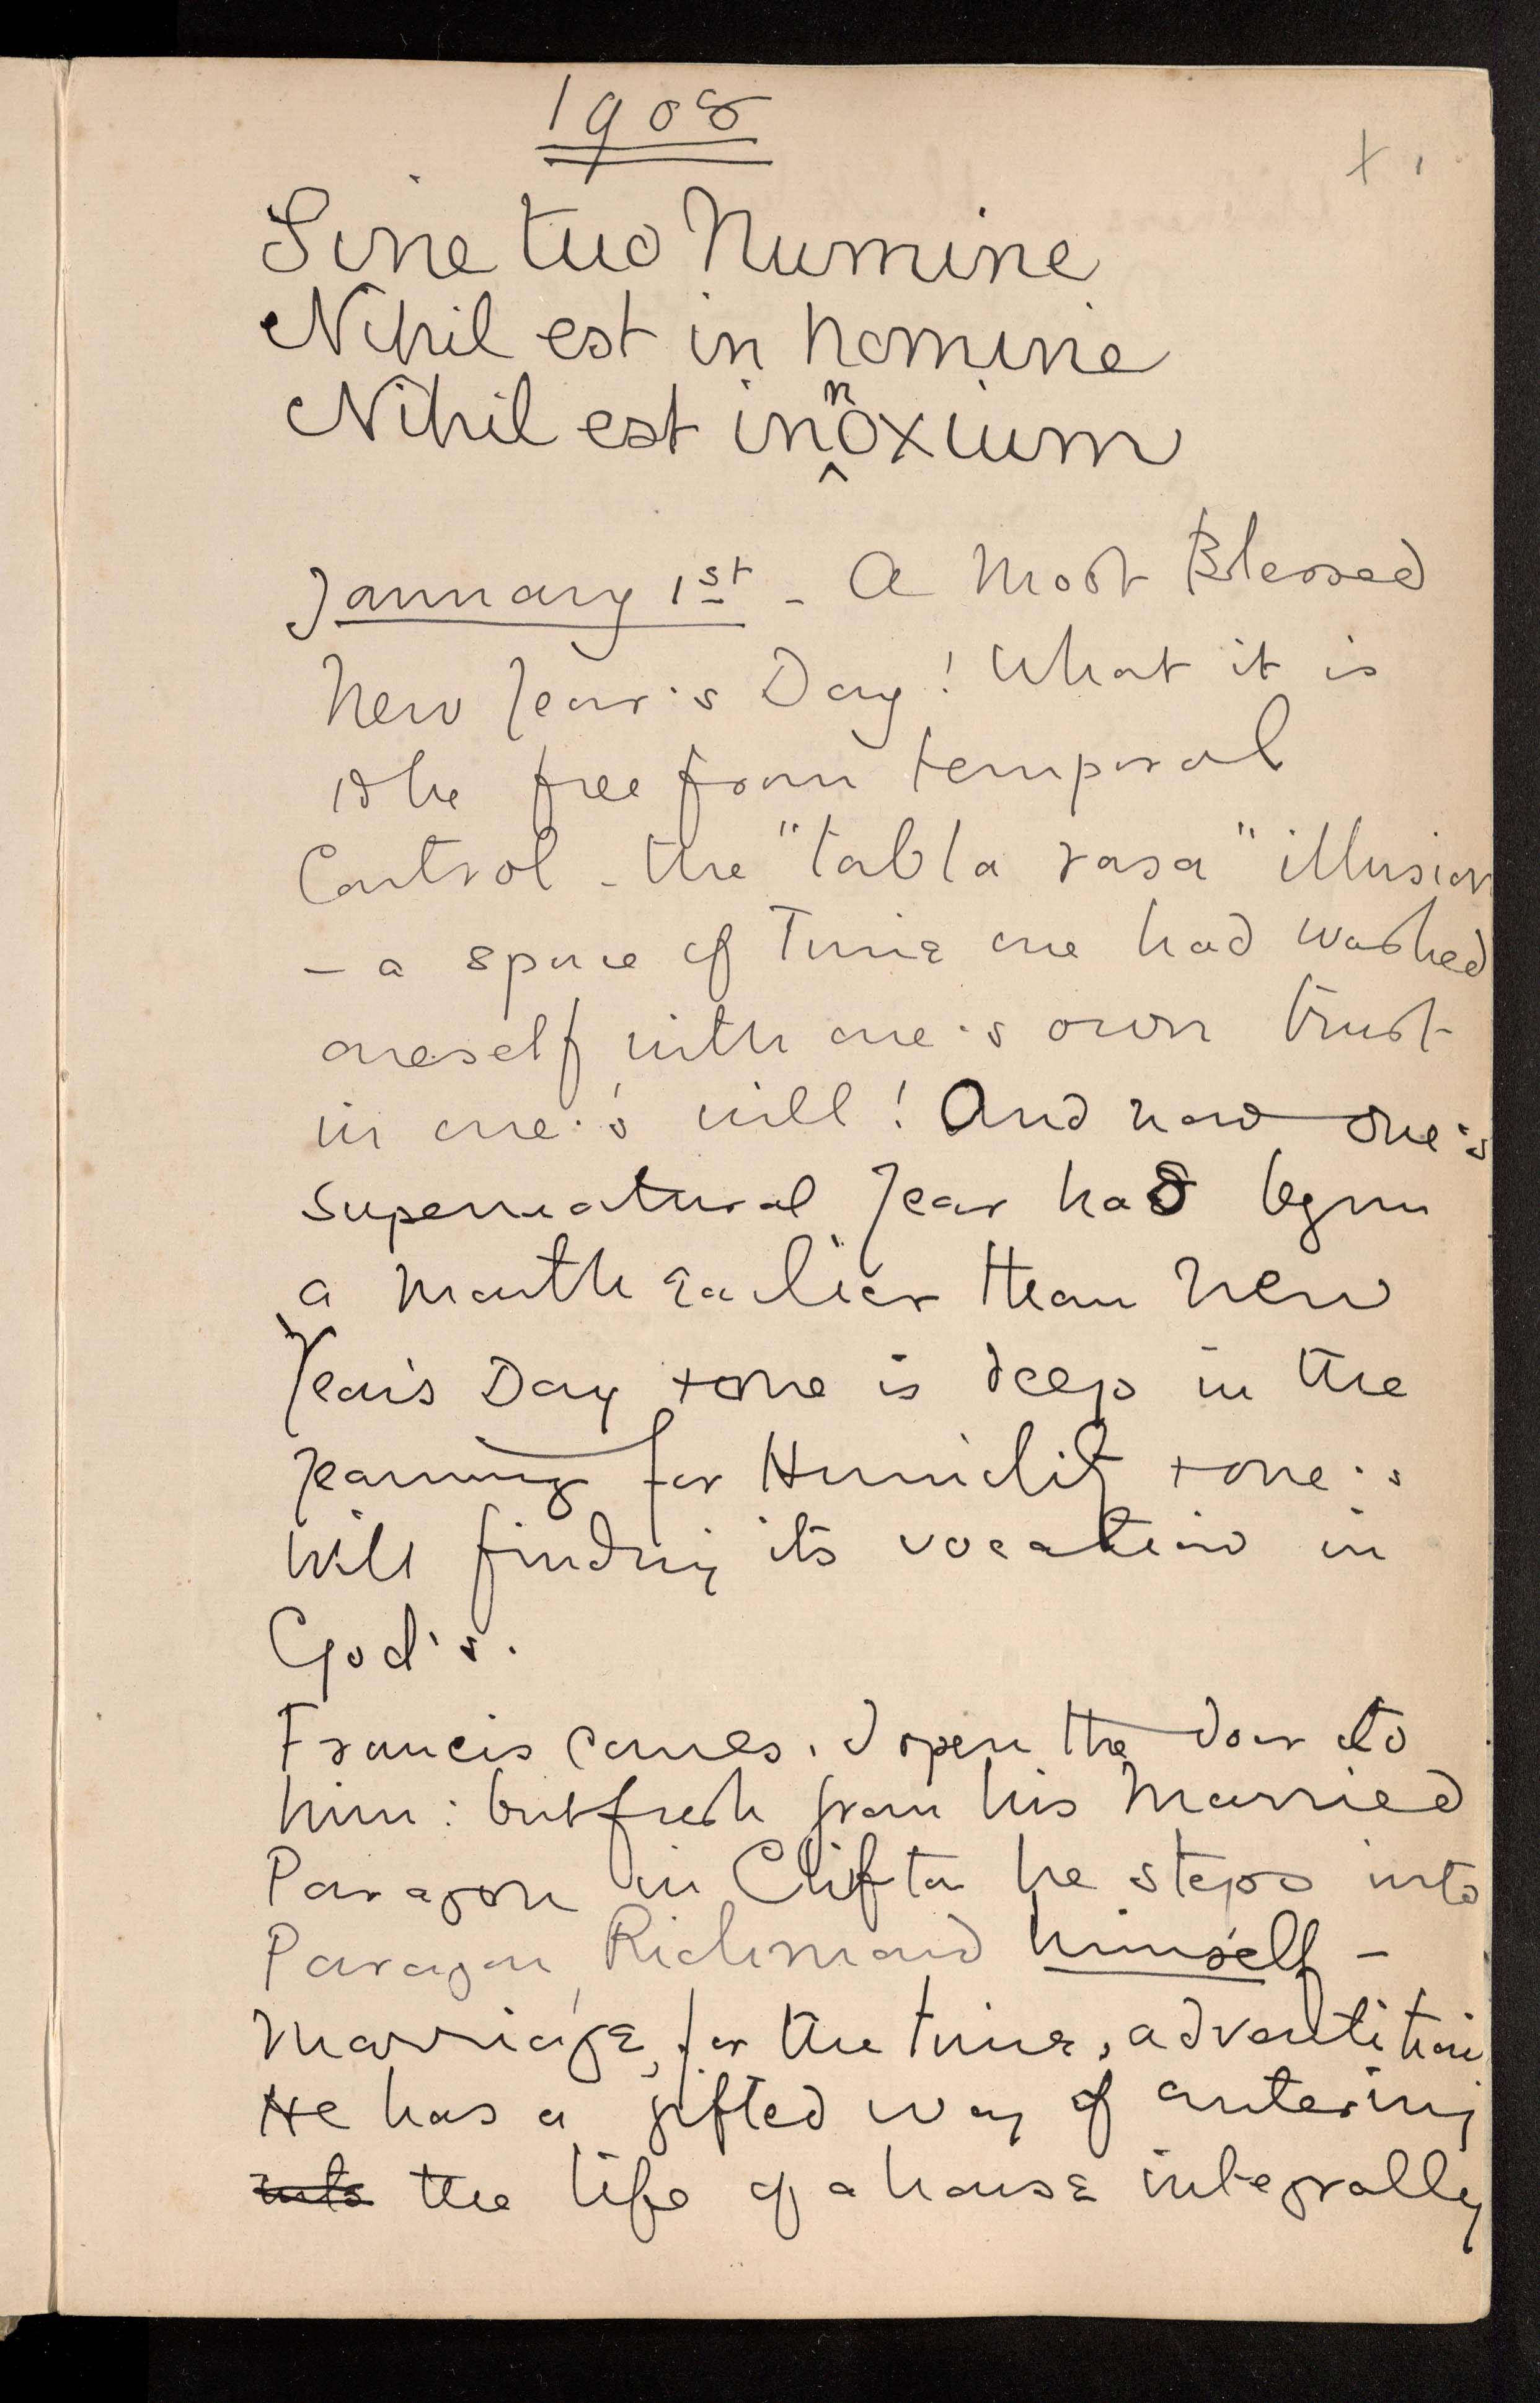 1908
x 1
Sine tuo Numine
Nihil est in homine
Nihil est innoxium
January 1st - A Most Blessed
New Year's Day! What it is
to be free from temporal
Control - the "tabla rasa" illusion
- a space of Time one had washed
oneself with one's own trust
in one's will! And now one's
Supernatural Year has begun
a month Earlier than New
Year's Day + one is deep in the
yearning for Humility + one's
will finding its vocation in
God's.
Francis comes. I open the door to
him: but fresh from his Married
Paragon in Clifton he steps into
Paragon, Richmond himself -
Marriage, for the time, adventitious
He has a gifted way of entering
into the life of a house integrally